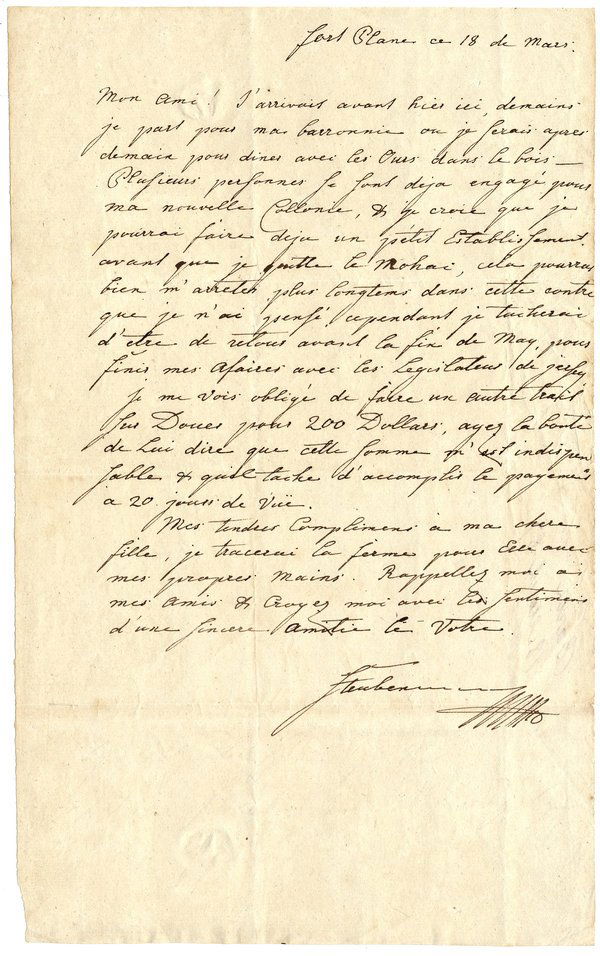 fort Plane ce 18 de Mars.
Mon Ami! J'arrivait avant hier ici, demains
je part pour ma barronnie ou je serais apres
demain pour diner avec les Ours dans le bois —
Plusieurs personnes se sont deja engagé pour
ma nouvelle Collonie, & je croie que je
pourrai faire deja un pétit Establissement
avant que je quitte le Mohai, cela pourrai
bien m'arreter plus longtems dans cette contre
que je n'ai pensé, cependant je tacherai
d'etre de retour avant la fin de May, pour
finir mes afaires avec les Legislateur de jersey
je me vois obligé de faire un autre trait
sur Doucr pour 200 Dollars, ayez la bonté
de Lui dire que cette somme m'est indispen
sable & qu'il tache d'accomplir le payement
a 20 jours de Vüe.
Mes tendres Complimens à ma chere
fille, je tracerai la ferme pour Elle avec
mes propres mains. Rappellez moi a
mes amis & Croyez moi avec les sentimens
d'une sincere amitie le Votre.
Steuben